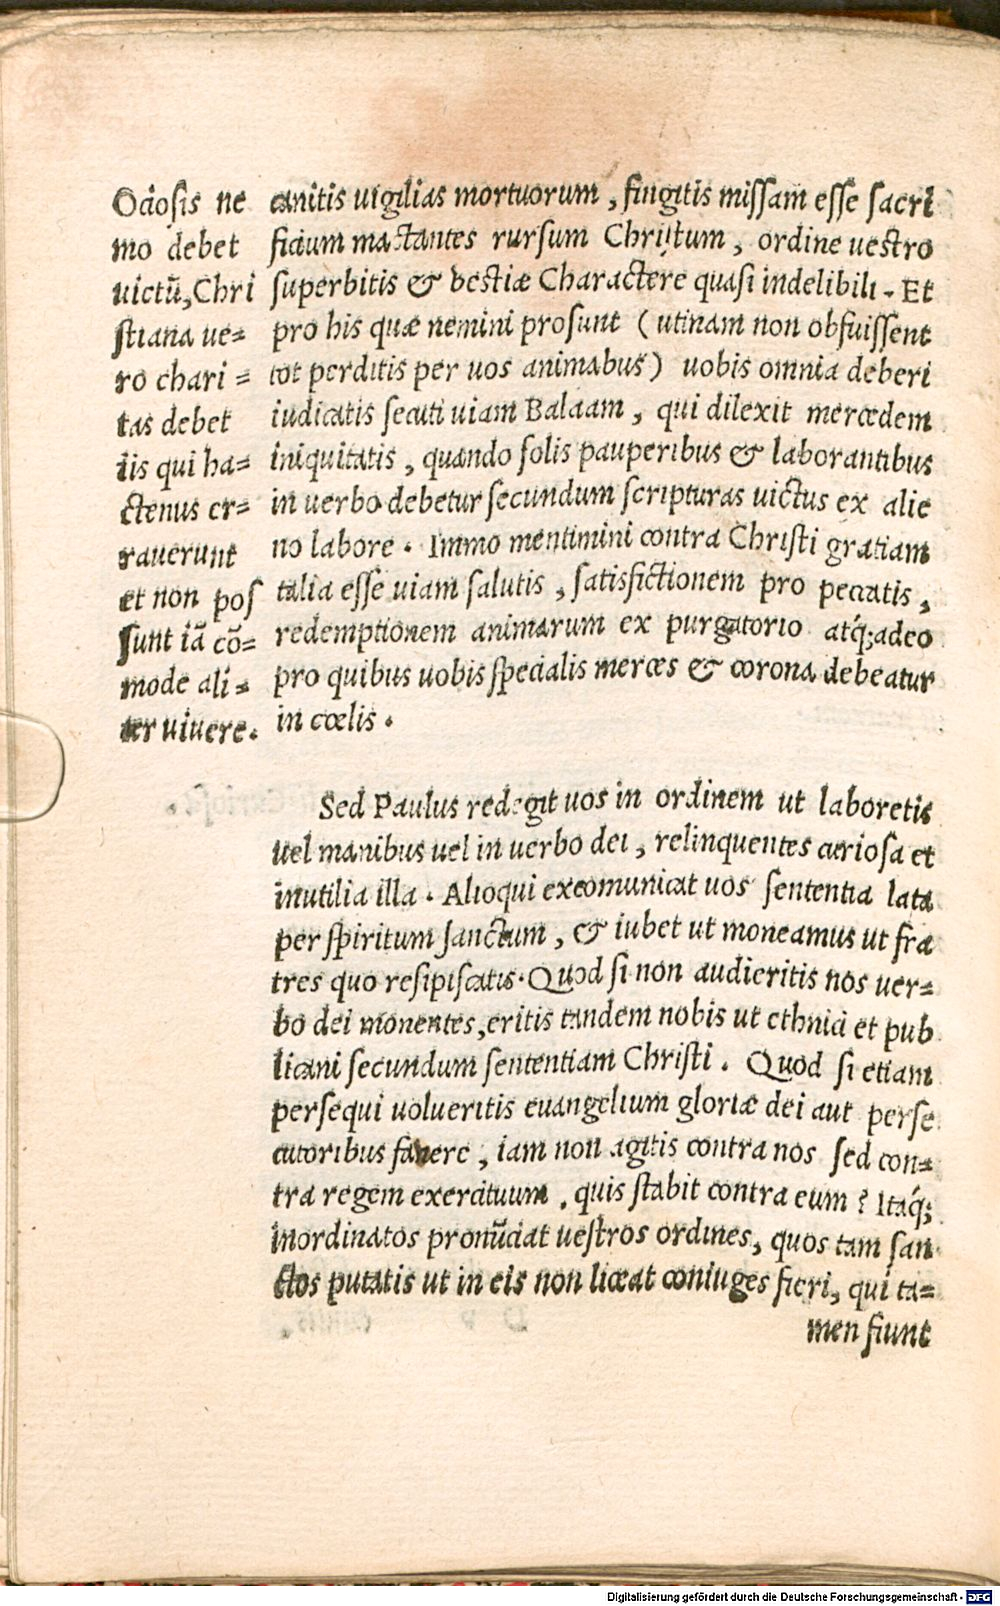 Ociosis ne
mo debet
uictū, Chri
stiana ue=
ro chari =
tas debet
iis qui ha=
ctenus er=
rauerunt
et non pos
sunt iā cō=
mode ali=
ter uiuere.
canitis uigilias mortuorum, fingitis missam esse sacri
ficium mactantes rursum Christum, ordine uestro
superbitis & bestiæ Charactere quasi indelibili. Et
pro his quæ nemini prosunt (utinam non obfuissent
tot perditis per uos animabus) uobis omnia deberi
iudicatis secuti uiam Balaam, qui dilexit mercedem
iniquitatis, quando solis pauperibus & laborantibus
in uerbo debetur secundum scripturas uictus ex alie
no labore. Immo mentimini contra Christi gratiam
talia esse uiam salutis, satisfictionem pro peccatis,
redemptionem animarum ex purgatorio atq́; adeo
pro quibus uobis specialis merces & corona debeatur
in cœlis.
Sed Paulus redegit uos in ordinem ut laboretis
uel manibus uel in uerbo dei, relinquentes curiosa et
inutilia illa. Alioqui excomunicat uos sententia lata
per spiritum sanctum, & iubet ut moneamus ut fra
tres quo resipiscatis. Quod si non audieritis nos uer=
bo dei monentes, eritis tandem nobis ut ethnici et pub
licani secundum sententiam Christi. Quod si etiam
persequi uolueritis euangelium gloriæ dei aut perse
cutoribus fauere, iam non agitis contra nos sed con=
tra regem exercituum, quis stabit contra eum? Itaq́;
inordinatos pronūciat uestros ordines, quos tam san
ctos putatis ut in eis non liceat coniuges fieri, qui ta=
men fiunt
Digitalisierung gefördert durch die Deutsche Forschungsgemeinschaft - DFG